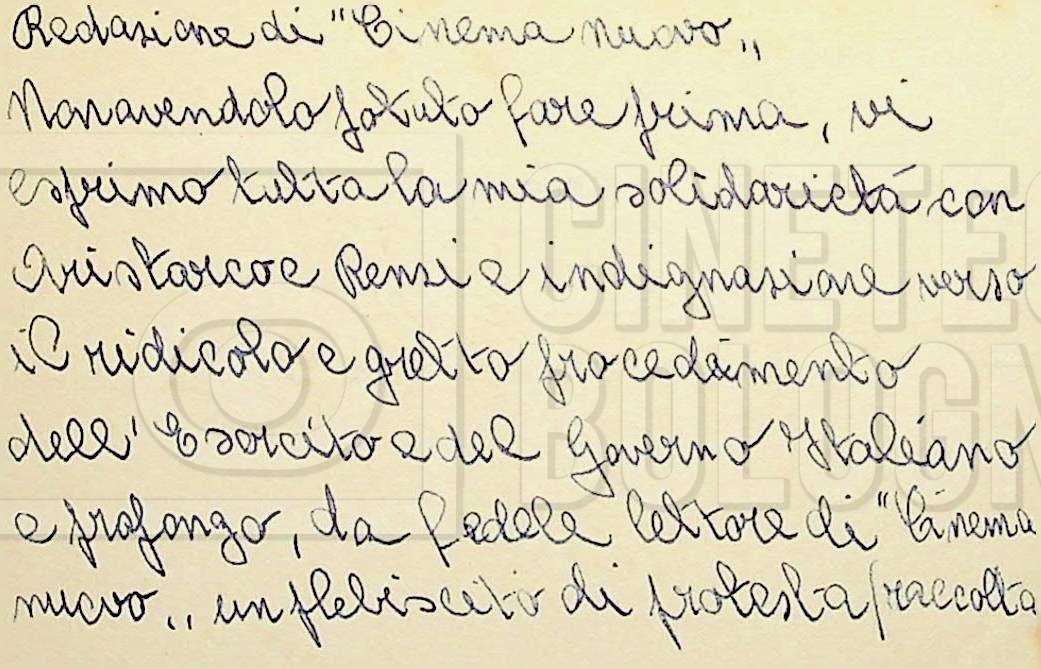 Redazione di "Cinema nuovo„
Non avendolo potuto fare prima, vi
esprimo tutta la mia solidarietá con
Aristarco e Renzi e indignazione verso
il ridicolo e gretto procedimento
dell'Esercito e del Governo Italiano
e propongo, da fedele lettore di "Cinema
nuovo„ un plebiscito di protesta (raccolta
CINETEC
BOLOGN